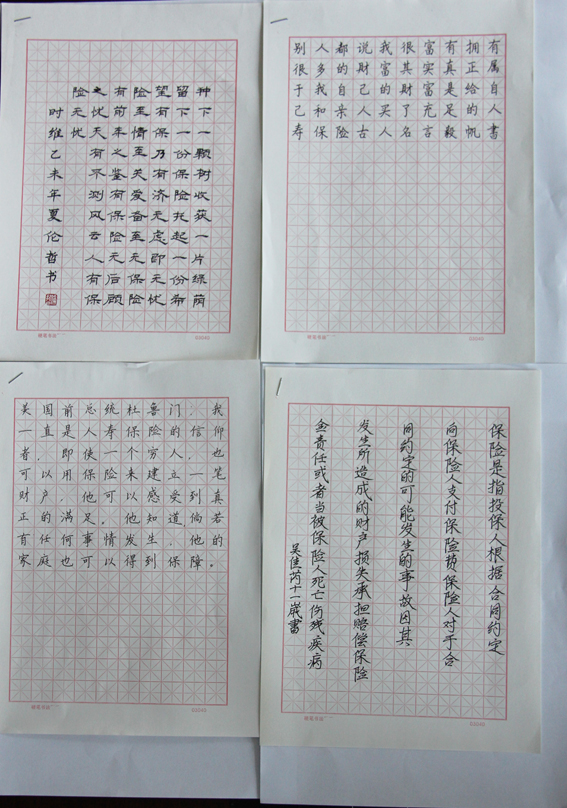 种下一颗树收获一片绿荫
留下一份保险托起一份希
望有保乃有济无虑即无忧
险至情至关爱备至无保险
有前车之鉴有保险无后顾
之忧天有不测风云人有保
险无忧
时维己未年夏伦哲书
别人都说我很富有拥有
很多的財富其实真正属
于我自己的财富是给自
己和亲人买了充足的人
寿保险古人名言毅帆書
美国前总统杜鲁门.我
一直是人寿保险的信仰
者,即使一个穷人,也
可以用保险来建立一笔
财产,他可以感受到真
正的满足。他知道,倘若
有任何事情发生,他的
家庭也可以得到保障。
保险是指投保人根据合同约定
向保险人支付保险费保险人对于合
同约定的可能发生的事故因其
发生所造成的财产损失承担赔偿保险
金责任或者当被保险人死亡伤残疾病
吴佳芮十一岁書